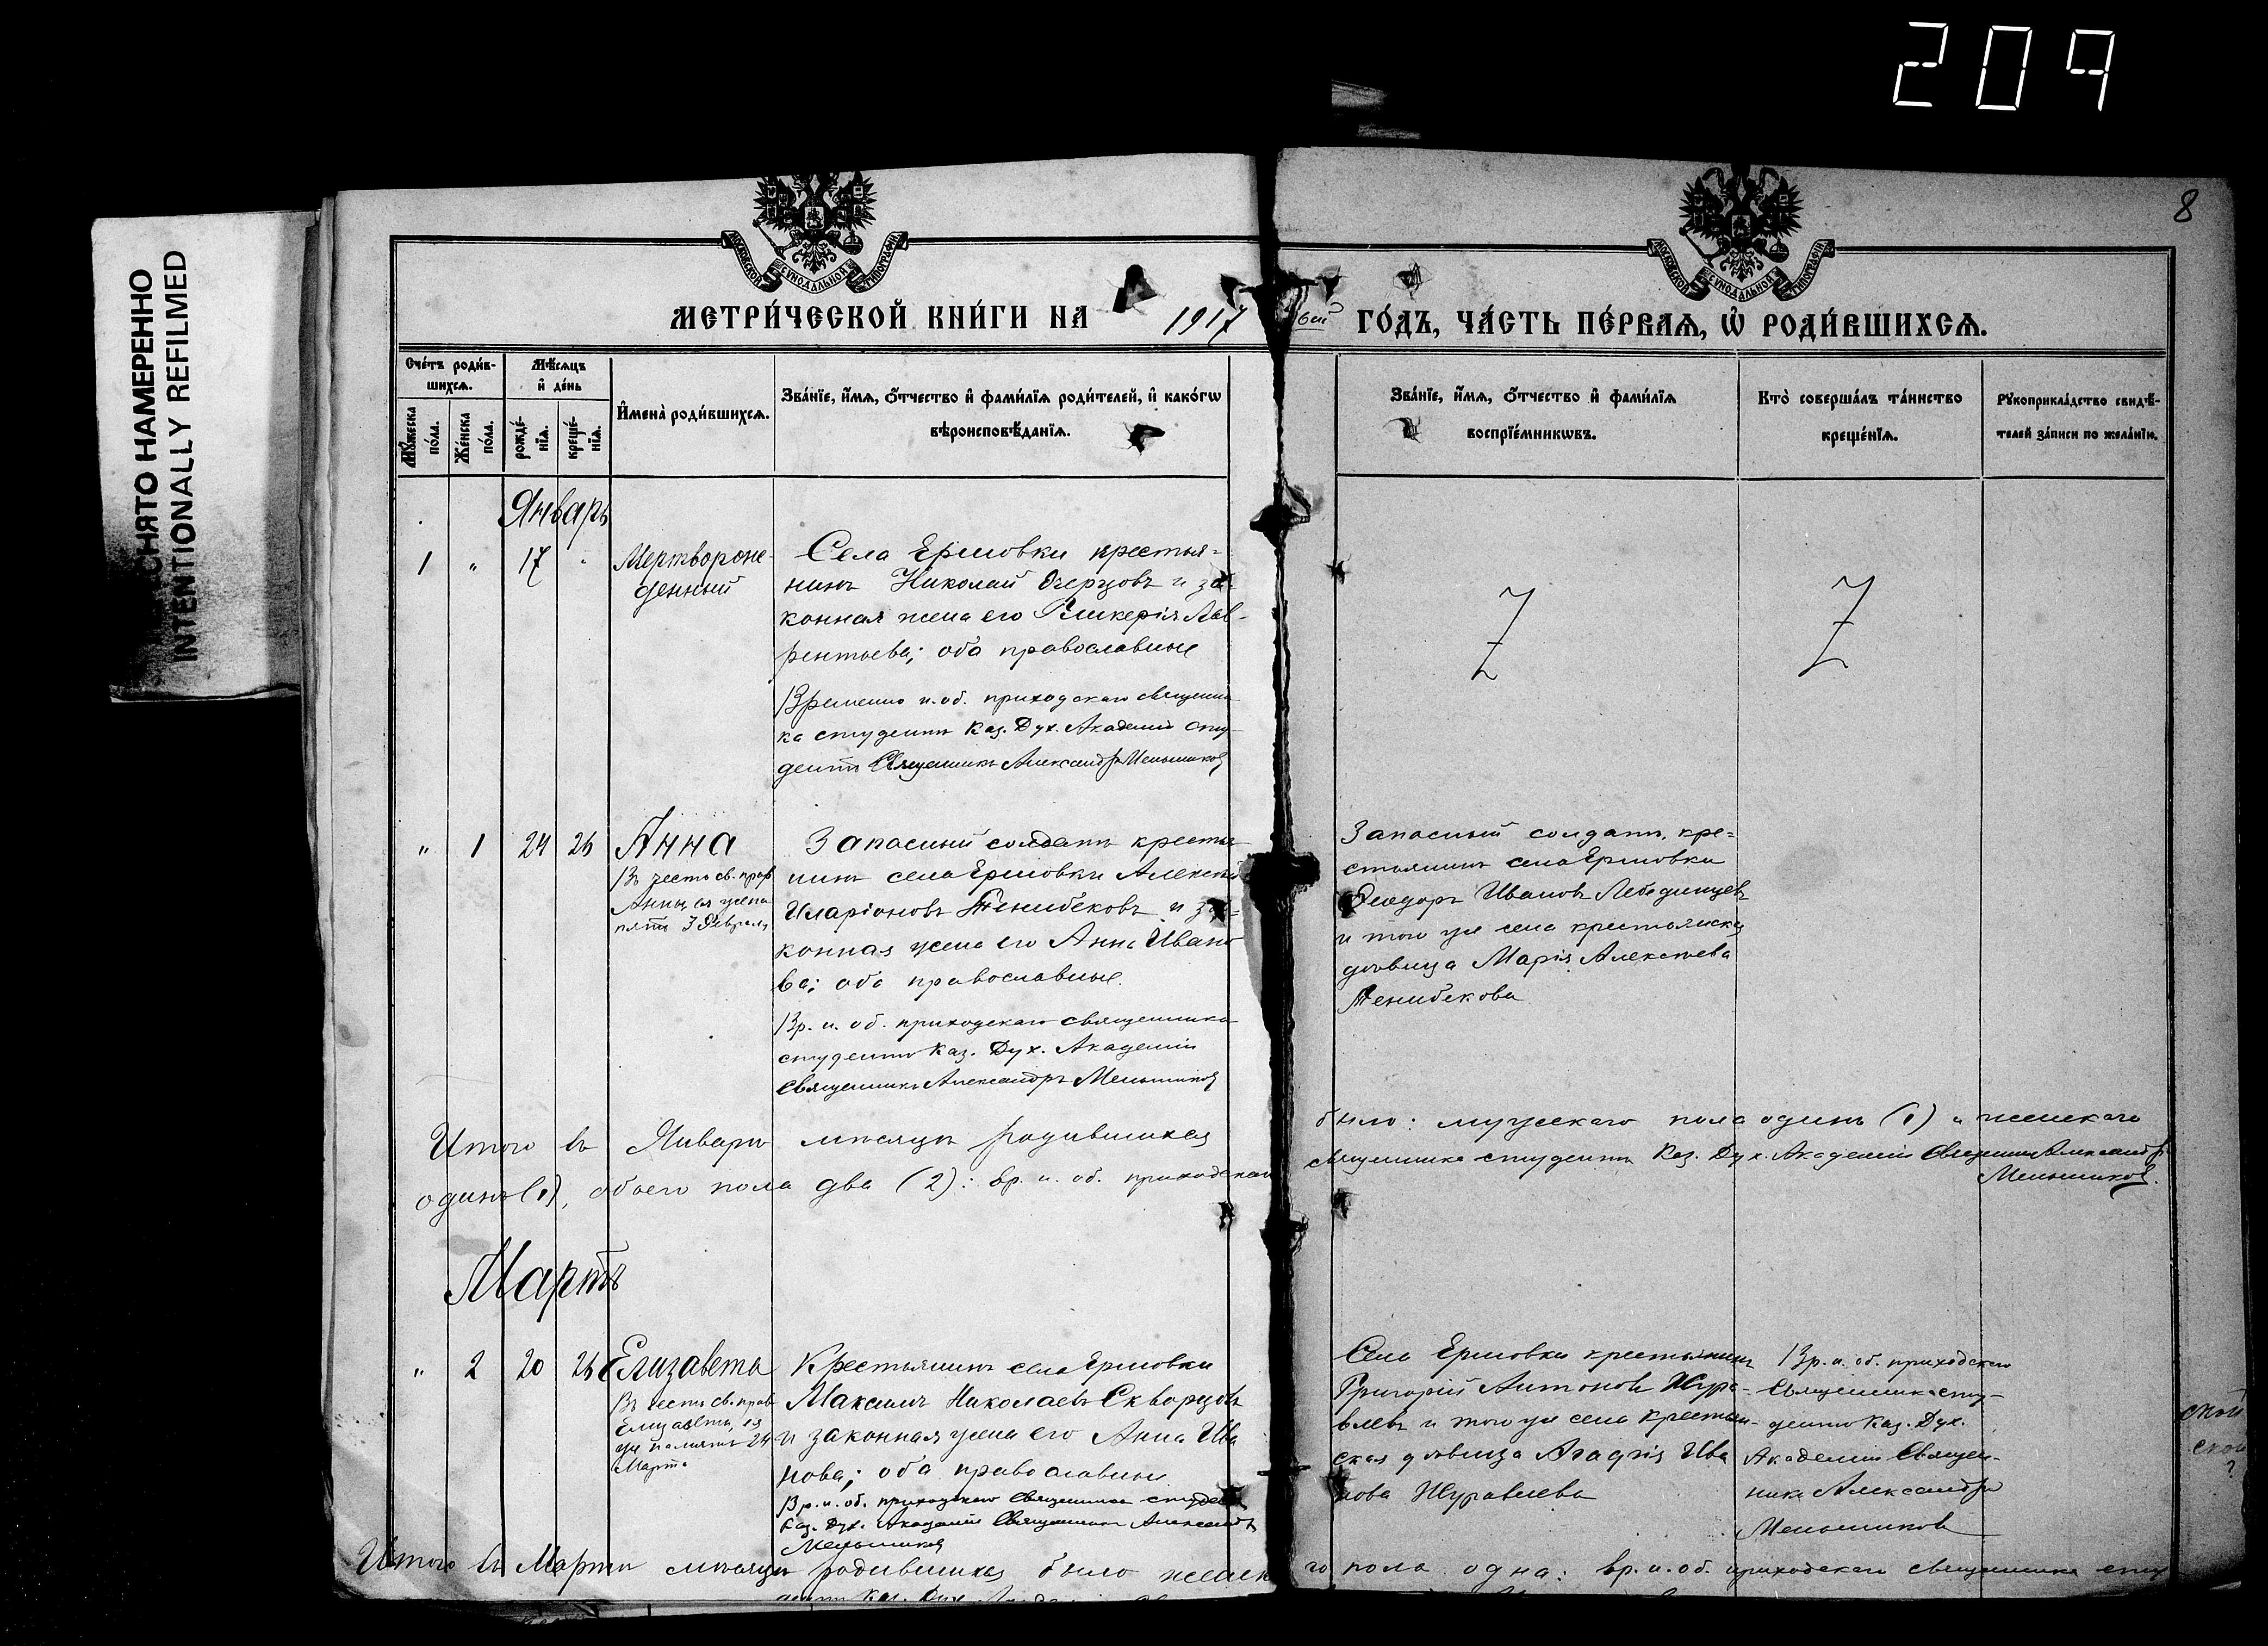 209
СНЯТО НАМЕРЕННО
INTENTIONALLY REFILMED
8
МОСКОВСКОЙ СѴНОДАЛЬНОЙ ТИПОГРАФІИ
МОСКОВСКОЙ СѴНОДАЛЬНОЙ ТИПОГРАФІИ
МЕТРИ́ЧЕСКОЙ КНИ́ГИ НА 1917 ГО́ДЪ, ЧА́СТЬ ПЕ́РВАѦ, Ѡ҆ РОДИ́ВШИХСѦ.
Сче́тъ роди́в-
шихсѧ.
Мꙋ́жеска по́ла.
Же́нска по́ла.
Мѣ́сѧцъ
и҆ де́нь
рожде́-
нїѧ.
креще́-
нїѧ.
И҆мена̀ роди́вшихсѧ.
Зва́нїе, и҆́мѧ, ѻ҆́тчество и҆ фами́лїѧ роди́телей, и҆ како́гѡ
вѣроисповѣ́данїѧ.
Зва́нїе, и҆́мѧ, ѻ҆́тчество и҆ фами́лїѧ
воспрїе́мникѡвъ.
Кто̀ соверша́лъ та́инство
креще́нїѧ.
Рꙋкоприкла́дство свидѣ́-
телей за́писи по жела́нїю.
Январь
1 " 17 "
Мертворож-
денный
Села Ермовки крестья=
нинъ Николай Огерцовъ и за-
конная жена его Гликерія Лав-
рентьева; оба православные
Временно и. об. приходскаго священни
ка студентъ Каз. Дух. Академіи сту-
дентъ Священникъ Александръ Меньшиковъ
" 1 24 26
Анна
Въ честь св. прав
Анны, ея же па
мять 3 Февраля
Запасный солдатъ крестья
нинъ села Ермовки Алексѣй
Иларіоновъ Тенибековъ и за-
конная жена его Анна Ивано
ва; оба православные.
Вр. и. об. приходскаго священника
студентъ Каз. Дух. Академіи
Священникъ Александръ Меньшиковъ
Запасный солдатъ, кре=
стьянинъ села Ермовки
Ѳеодоръ Ивановъ Лебединцевъ
и того же села крестьянская
дѣвица Марія Алексѣева
Тенибекова
Итого въ Январѣ мѣсяцѣ родившихся было: мужескаго пола одинъ (1) и женскаго
одинъ (1), обоего пола два (2): вр. и. об. приходскаго священника студентъ Каз. Дух. Академіи Священникъ Александръ
Меньшиковъ.
Мартъ
" 2 20 26
Елизавета
Въ честь св. прав
Елизаветы, ея
же память 24
Марта
Крестьянинъ села Ермовки
Максимъ Николаевъ Скворцовъ
и законная жена его Анна Ива
нова; оба православные
Вр. и. об. приходскаго Священника студентъ
Каз. Дух. Академіи Священникъ Александръ
Меньшиковъ
Села Ермовки крестьянинъ
Григорій Антоновъ Жура-
влевъ и того же села крестьян-
ская дѣвица Агафія Ива
нова Журавлева
Вр. и. об. приходскаго
Священника сту-
дентъ Каз. Дух.
Академіи Священ-
никъ Александръ
Меньшиковъ
ской
ской
?
Итого въ Мартѣ мѣсяцѣ родившихся было женскаго пола одна: вр. и. об. приходскаго священника сту
дентъ Каз. Дух.